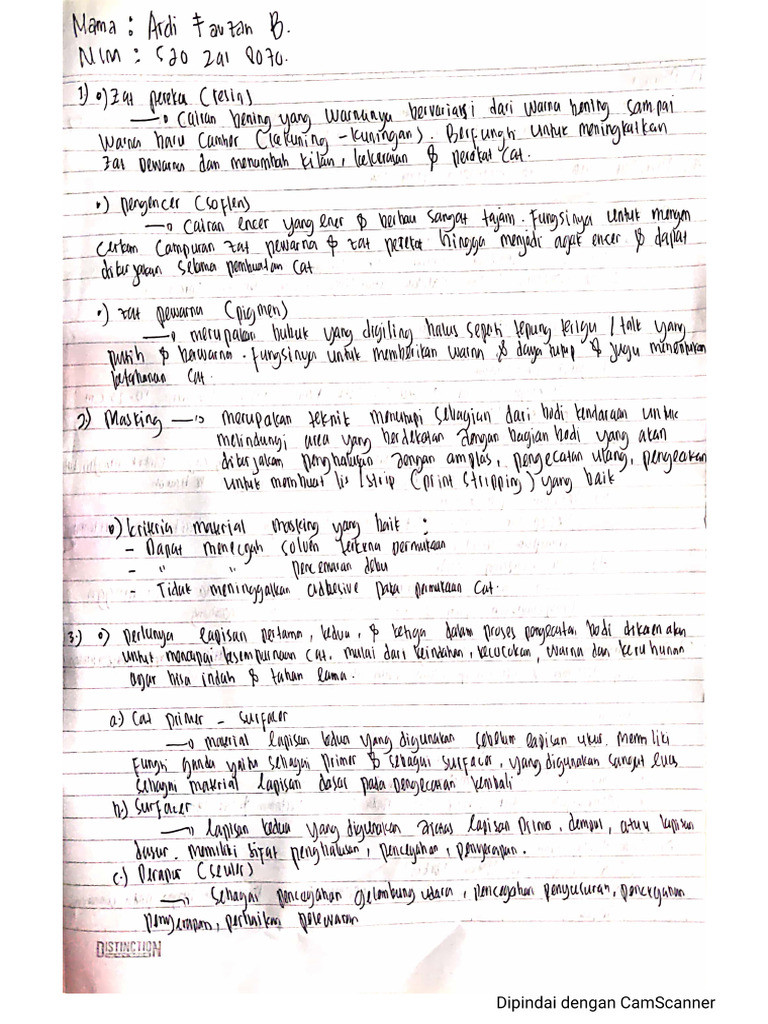 Nama : Ardi Fauzan B.
NIM : 520 2ai 8070.
1) o) Zat perekat (resin)
→ Cairan bening yang warnanya bervariasi dari warna bening sampai
warna baru (kekuning - kuningan). Berfungsi untuk meningkatkan
zat pewarna dan menambah kilau, kekerasan & perekat cat.
o) pengencer (Soflen)
→ Cairan encer yang & berbau sangat tajam. Fungsinya untuk mengen
cerkan Campuran zat pewarna & zat perekat hingga menjadi agak encer & dapat
dikerjakan selama pembuatan cat
o) zat pewarna (pigmen)
→ merupakan bubuk yang digiling halus seperti tepung terigu / talk yang
putih & berwarna. Fungsinya untuk memberikan warna & daya tutup & juga menentukan
ketahanan cat.
2) Masking → merupakan teknik menutupi sebagian dari bodi kendaraan untuk
melindungi area yang berdekatan dengan bagian bodi yang akan
dikerjakan penghalusan dengan amplas, pengecatan ulang, pengecatan
untuk membuat lis / strip (print stripping) yang baik
o) kriteria material masking yang baik :
- Dapat mencegah solven terkena permukaan
- " " pencemaran debu
- Tidak meninggalkan adhesive pada permukaan cat.
3.) o) perlunya lapisan pertama, kedua, & ketiga dalam proses pengecatan bodi dikarenakan
untuk mencapai kesempurnaan cat. mulai dari keindahan, kecocokan, warna dan
agar bisa indah & tahan lama.
a.) Cat primer - surfacer
→ material lapisan kedua yang digunakan sebelum lapisan akhir. Memiliki
fungsi ganda yaitu sebagai primer & sebagai surfacer, yang digunakan sangat luas
sebagai material lapisan dasar pada pengecatan kembali
b.) Surfacer
→ lapisan kedua yang digunakan diatas lapisan primer, dempul, atau lapisan
dasar. memiliki sifat penghalusan, pencegahan, penyerapan.
c.) Perapat (sealer)
→ sebagai pencegahan gelembung udara, pencegahan penyusutan, pencegahan
penyerapan, perbaikan pelekatan
DISTINCTION
Dipindai dengan CamScanner